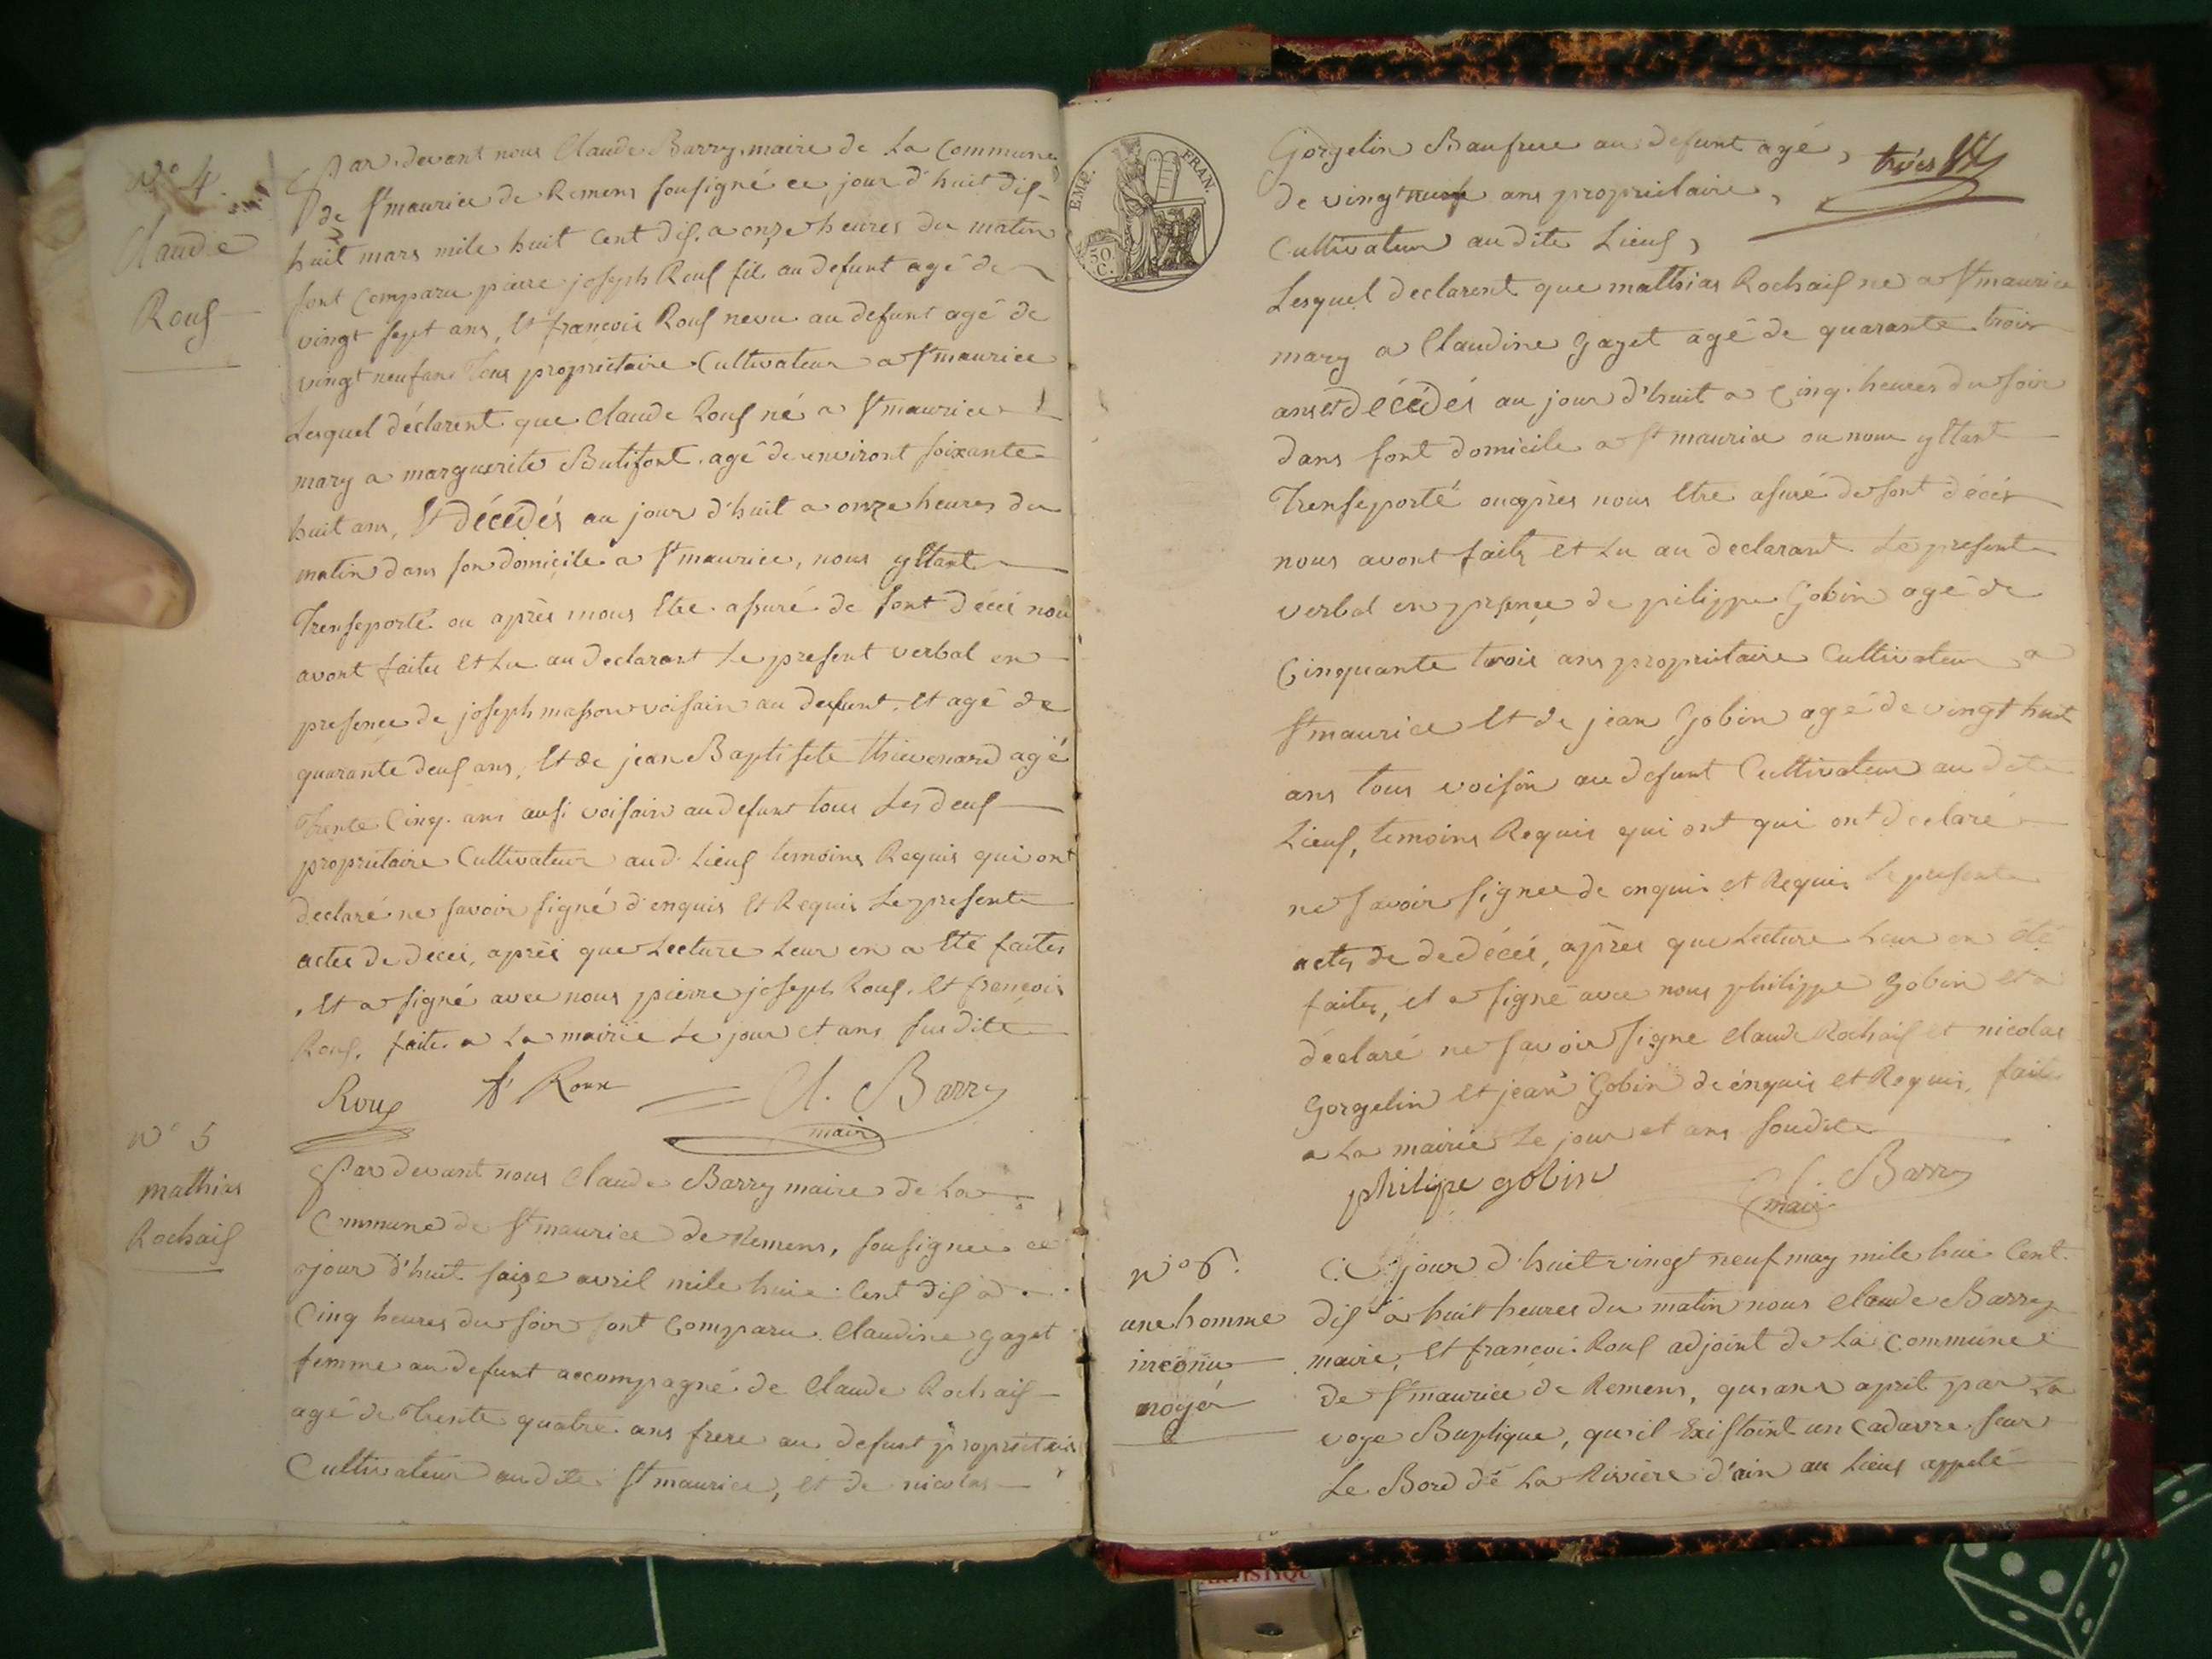 N° 4.
Claude
Rouf
Par devant nous Claude Barry maire de la Commune
de St maurice de Remens sousigné ce jour d'huit dis-
huit mars mile huit Cent dis, a onze heures du matin
sont Comparu piere joseph Rouf fil au defunt agé de
vingt sept ans, Et françois Rouf nevu au defunt agé de
vingt neuf ans Tous propriétaire Cultivateur a St maurice
Lesquel déclarent que Claude Rouf né a St maurice
mary a marguerite Butifont agé de environt soixante
huit ans, Et décédés au jour d'huit a onze heures du
matin dans son domicile a St maurice, nous y Etant
Trensporté ou après nous Etre assuré de sont décés nou
avont faites Et Lu au declarant Le present verbal en
presence de joseph masson voisain au defunt, Et agé de
quarante deuf ans, Et de jean Baptiste thievenard agé
Trente Cinq ans ausi voisain au defunt tous Les deuf
propriétaire Cultivateur aud. Lieuf temoins Requis qui ont
declaré ne savoir signé d'enquis Et Requis Le presente
actes de decés, aprés que Lecture Leur en a Eté faites
Et a signé avec nous pierre joseph Rouf, Et françois
Rouf, faites a La mairie Le jour et ans susdite
Roux fs Roux Cl. Barry
maire
N° 5
mathias
Rochaif
Par devant nous Claude Barry maire de La
Commune de St maurice de Remens, sousignee ce
jour d'huit saize avril mile huit Cent dis à
Cinq heures du soir sont Comparu Claudine gaget
femme au defunt accompagné de Claude Rochaif
agé de Trente quatre ans frere au defunt propriétaire
Cultivateur au dite St maurice, et de nicolas
EMP. FRAN.
50
C.
Gorgelin Baufrere au defunt agé,
de vingt neuf ans propriétaire,
Cultivateur au dite Lieuf,
Lesquel declarent que mathias Rochaif ne a St maurice
mary a Claudine gaget agé de quarante trois
ans Et décédés au jour d'huit a Cinq heures du soir
dans sont domicile a St maurice ou nous y Etant
Trensporté ou après nous Etre asuré de sont décés
nous avont faits et Lu au declarant Le presente
verbal en presence de pilippe Gobin agé de
Cinquante trois ans propriétaire Cultivateur a
St maurice Et de jean Gobin agé de vingt huit
ans tous voisin au defunt Cultivateur au dite
Lieuf, temoins Requis qui ont qui ont declaré
ne savoir signee de enquis et Requis Le presente
actes de de décés, après que Lecture Leur en été
faites, et a signé avec nous philippe Gobin et a
déclaré ne savoir signe Claude Rochaif et nicolas
Gorgelin Et jean Gobin de énquis et Requis, faite
a La mairie Le jour et ans soudite
philipe gobin Cl. Barry
maire
N° 6.
une homme
inconu
noyer
Ce jour d'huit vingt neuf may mile hui Cent
dis à huit heures du matin nous Claude Barry
maire, Et françoi Rouf adjoint de La Commune
de St maurice de Remens, qu ans aprit par La
voye Buplique, qu'il Existoint un Cadavre sur
Le Bord de La Riviere d'ain au Lieuf appelé